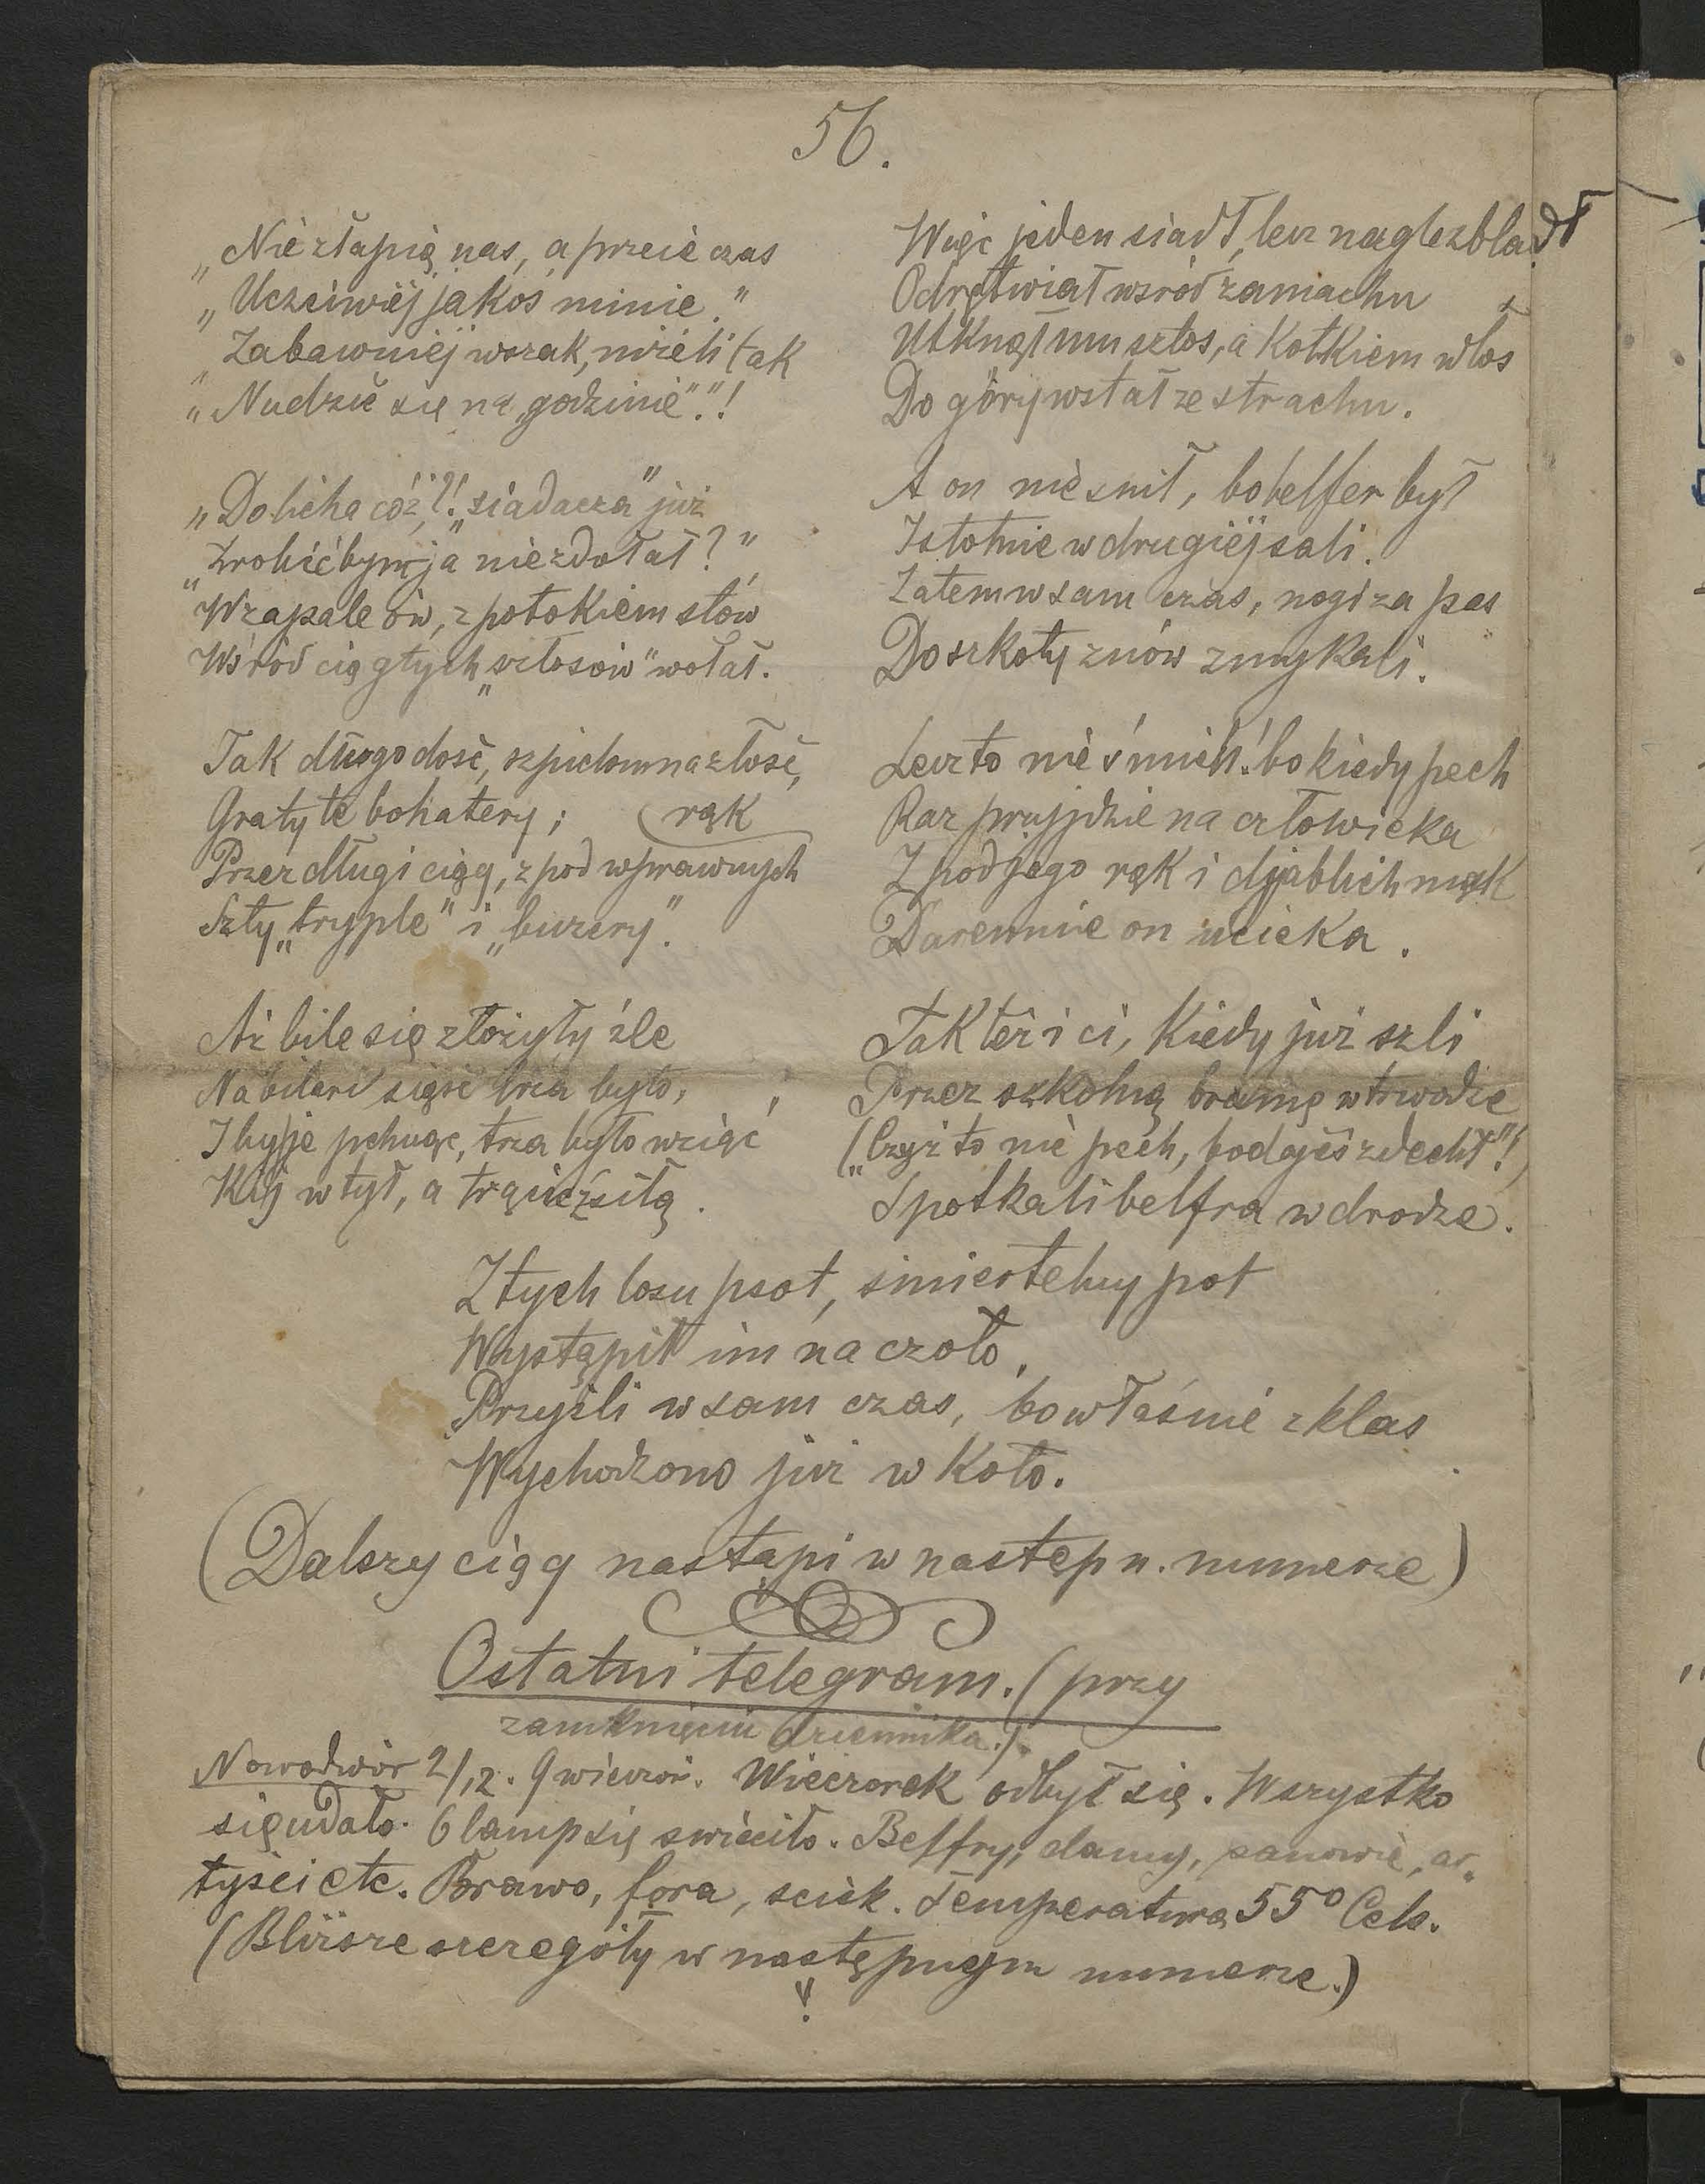 56.
„Nie złapią nas, a przecie czas
„Uczciwiéj jakoś minie."
„Zabawniéj wszak, niżeli tak
„Nudzić się na „godzinie"."!
„Do licha cóż?! „siadacza" już
„Zrobić bym ja nie zdołał?"
W zapale ów, z potokiem słów
Wśród ciągłych „sztosów" wołał.
Tak długo dość, szpiclom na złość,
Grały te bohatery;
Przez długi ciąg, z pod wprawnych rąk
Szły „tryple" i „buzery".
Aż bile się złożyły źle
Na bilard sięść trza było,
I by je pchnąć, trza było wziąć
Kij w tył, a trącić z siłą.
Więc jeden siadł, lecz nagle zbladł
Odrętwiał wśród zamachu
Utknął mu sztos, a kołkiem włos
Do góry wstał ze strachu.
A on nie śnił, bo belfer był
Istotnie w drugiéj sali.
Zatem w sam czas, nogi za pas
Do szkoły znów zmykali.
Lecz to nie śmiéch! bo kiedy pech
Raz przyjdzie na człowieka
Z pod jego rąk i djablich mąk
Daremnie on ucieka.
Tak też i ci, kiedy już szli
Przez szkolną bramę w trwodze
(„Czyż to nie pech, bodajś zdechł"!)
Spotkali belfra w drodze.
Z tych losu psot, śmiertelny pot
Wystąpił im na czoło,
Przyszli w sam czas, bo właśnie z klas
Wychodzono już w koło.
(Dalszy ciąg nastąpi w następn. numerze)
Ostatni telegram. (przy
zamknięciu dziennika.)
Nowodwór 2/12. 9 wieczór. Wieczorek odbył się. Wszystko
się udało. 6 lamp się świeciło. Belfry, damy, panowie, ar„
tyści etc. Brawo, fora, ścisk. Temperatura 55° Cels.
(Bliższe szczegóły w następnym numerze.)